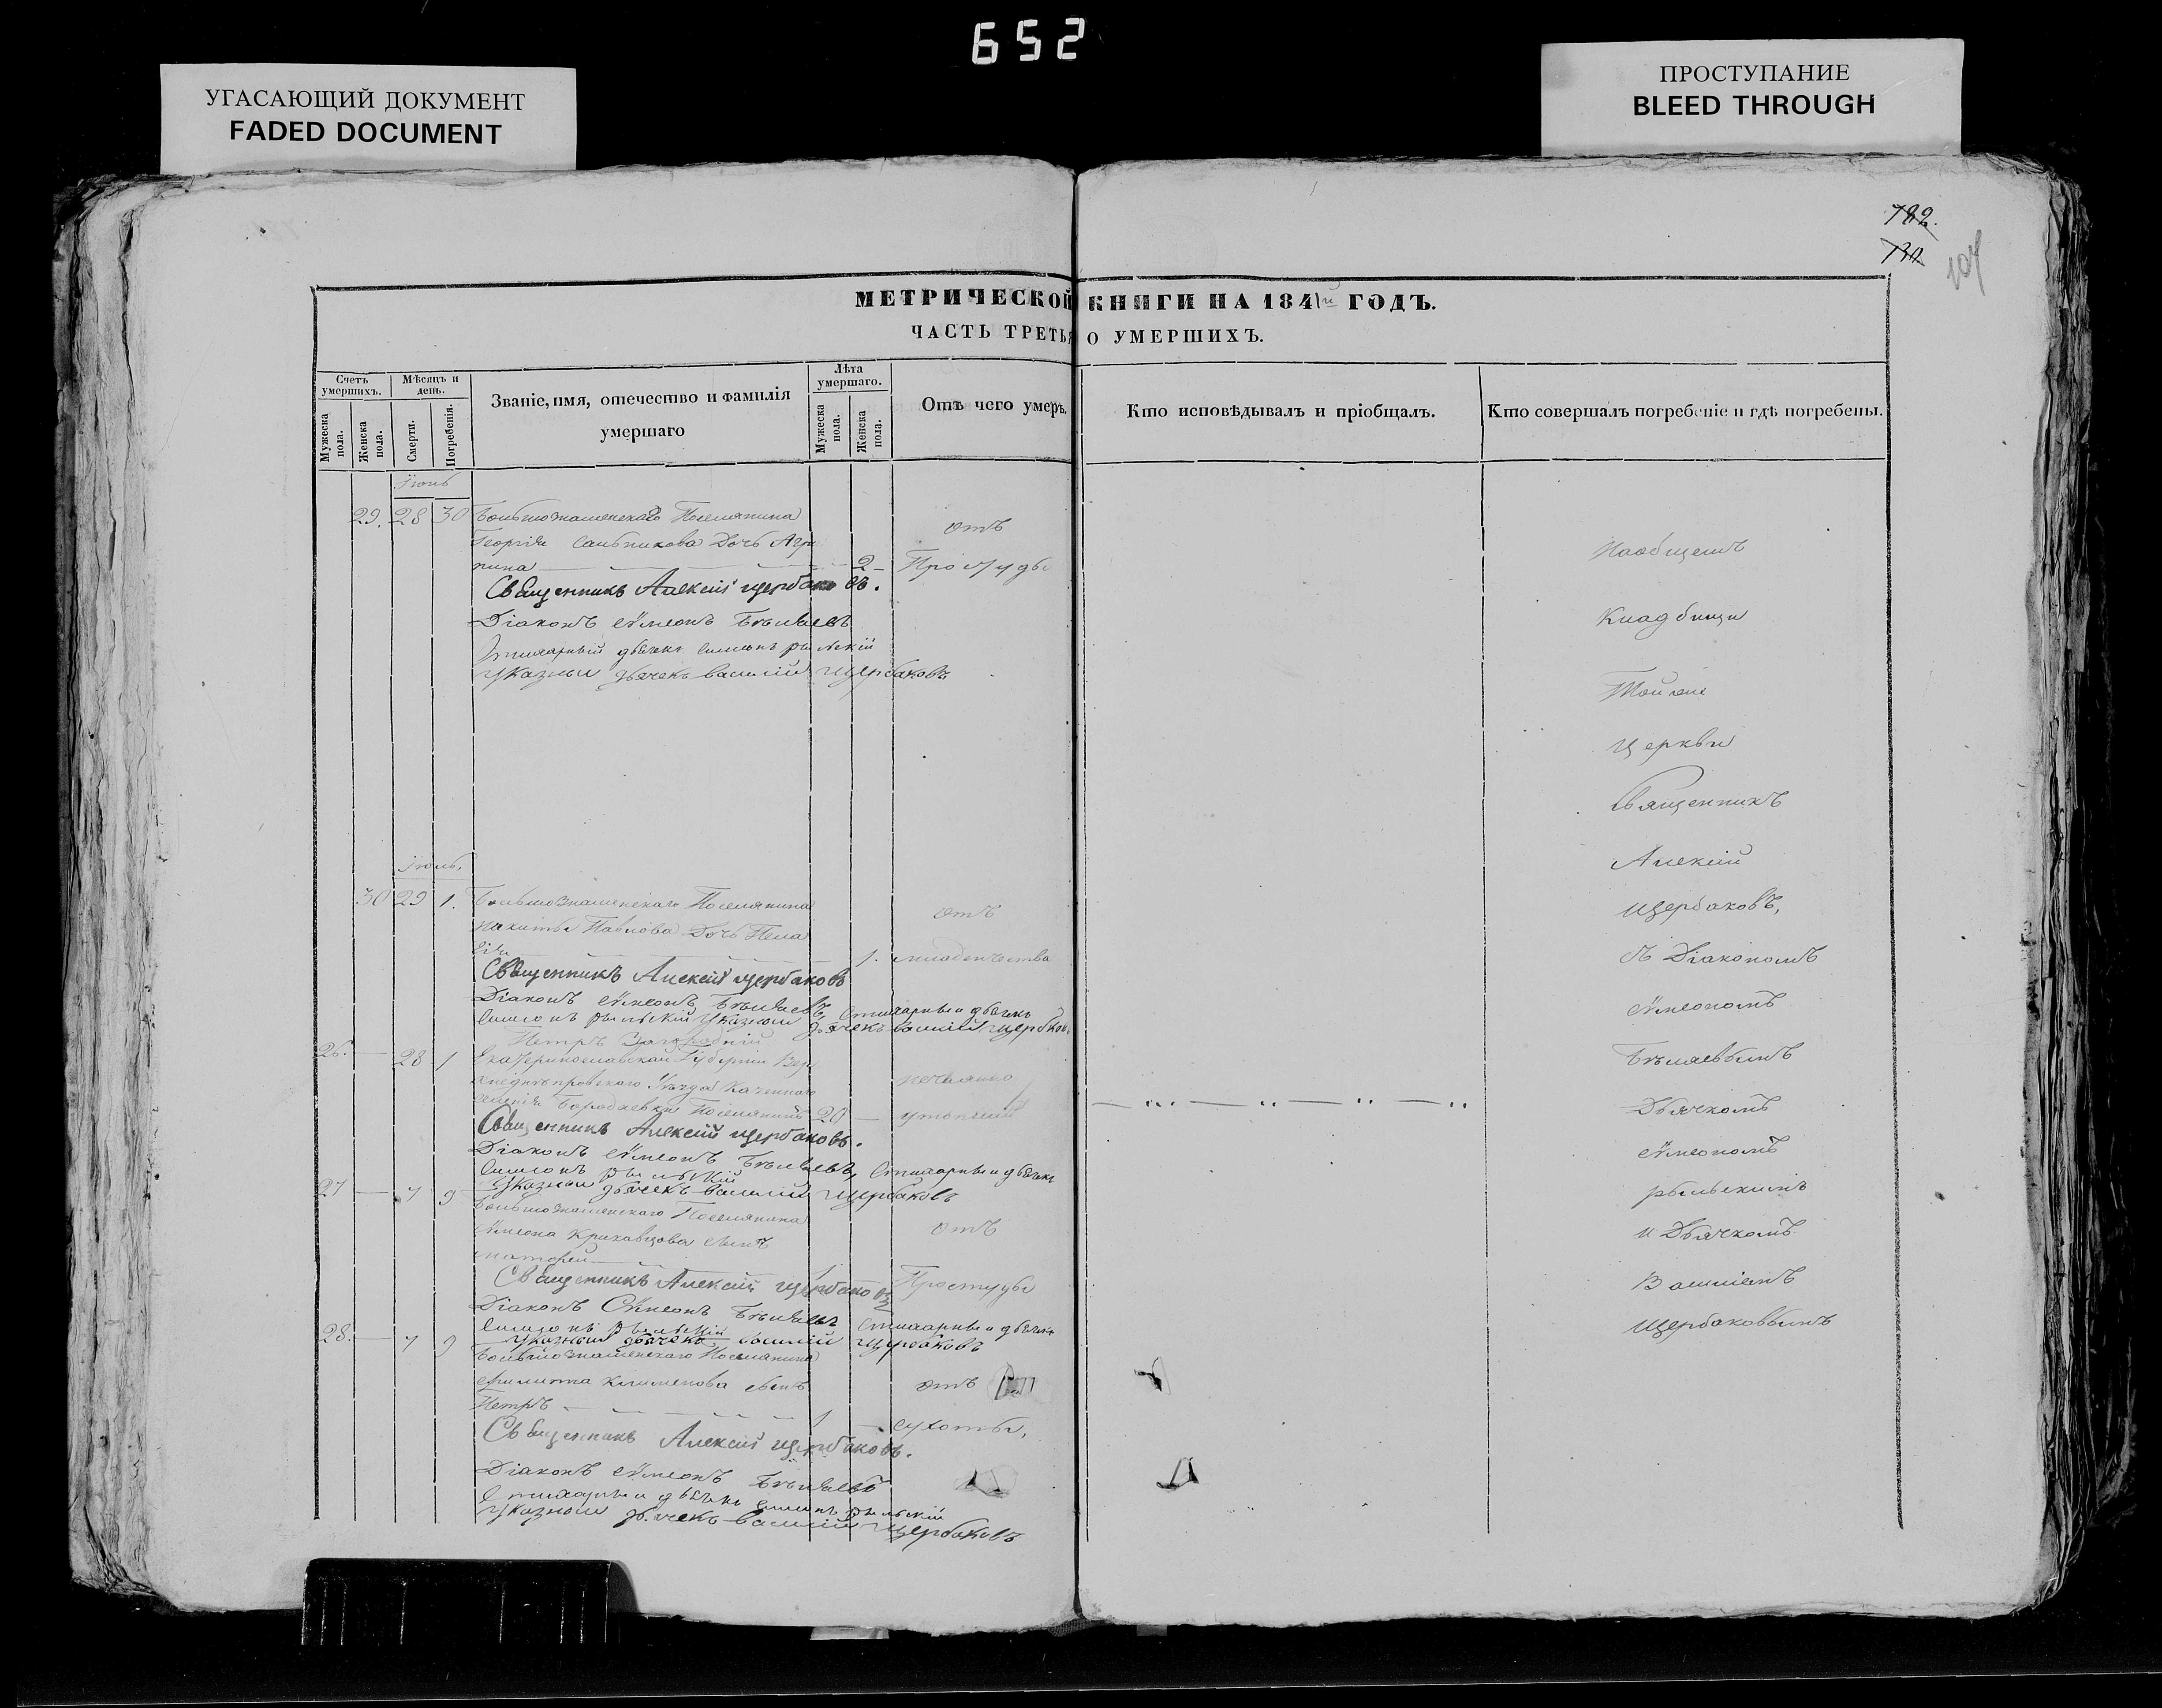 652
УГАСАЮЩИЙ ДОКУМЕНТ
FADED DOCUMENT
ПРОСТУПАНИЕ
BLEED THROUGH
782.
130
104
МЕТРИЧЕСКОЙ КНИГИ НА 1841й ГОДЪ.
ЧАСТЬ ТРЕТЬЯ О УМЕРШИХЪ.
Счетъ умершихъ.
Мужеска пола.
Женска пола.
Мѣсяцъ и день.
Смерти.
Погребенія.
Званіе, имя, отечество и фамилія умершаго
Лѣта умершаго.
Мужеска пола.
Женска пола.
Отъ чего умеръ.
Кто исповѣдывалъ и пріобщалъ.
Кто совершалъ погребеніе и гдѣ погребены.
Іюнь
29. 28 30 Большознаменскаго Поселянина отъ
Георгія Сальникова Дочь Агри
пина 2 Простуды
Священникъ Алексій Щербаковъ.
Діаконъ Сѵмеонъ Бѣляевъ
Стихарный дьячекъ Симеонъ Рыльскій
Указный дьячекъ Василій Щербаковъ
Іюль.
30 29 1. Большознаменскаго Поселянина отъ
Никиты Павлова Дочь Пела
гія 1. младенчества
Священникъ Алексій Щербаковъ
Діаконъ Сѵмеонъ Бѣляевъ, Стихарный дьячекъ
Симеонъ Рыльскій Указный дьячекъ Василій Щербаков
Петръ
26. 28 1 Екатеринославской Губерніи Вер
хнеднѣпровскаго Уѣзда Казеннаго нечаянно
селенія Бородаевки Поселянинъ 20
Священникъ Алексій Щербаковъ.
Діаконъ Сѵмеонъ Бѣляевъ, Стихарный дьячекъ
Симеонъ Рыльскій
Указный дьячекъ Василій Щербаковъ
27 7 9 Большознаменскаго Поселянина
Сѵмеона Сынъ отъ
1 Простуды
Священникъ Алексій Щербаковъ
Діаконъ Сѵмеонъ Бѣляевъ Стихарный дьячекъ
Симеонъ Рыльскій
Указный дьячекъ Василій Щербаковъ
28. 7 9 Большознаменскаго Поселянина
Филиппа Клименова сынъ отъ
Петръ 1 Сухоты,
Священникъ Алексій Щербаковъ.
Діаконъ Сѵмеонъ Бѣляевъ
Стихарный дьячекъ Симеонъ Рыльскій
Указный дьячекъ Василій Щербаковъ
Наобщемъ
Кладбищи
Той же
Церкви
Священникъ
Алексій
Щербаковъ,
съ Діакономъ
Сѵмеономъ
Бѣляевымъ
Дьячкомъ
Сѵмеономъ
Рыльскимъ
и Дьячкомъ
Василіемъ
Щербаковымъ